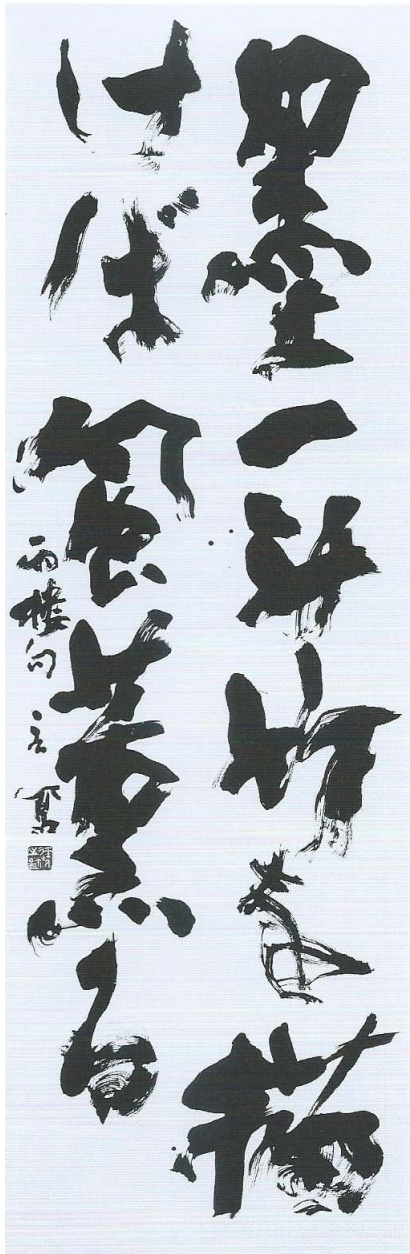 墨一斗竹を描
けば風薫る
雨楼句